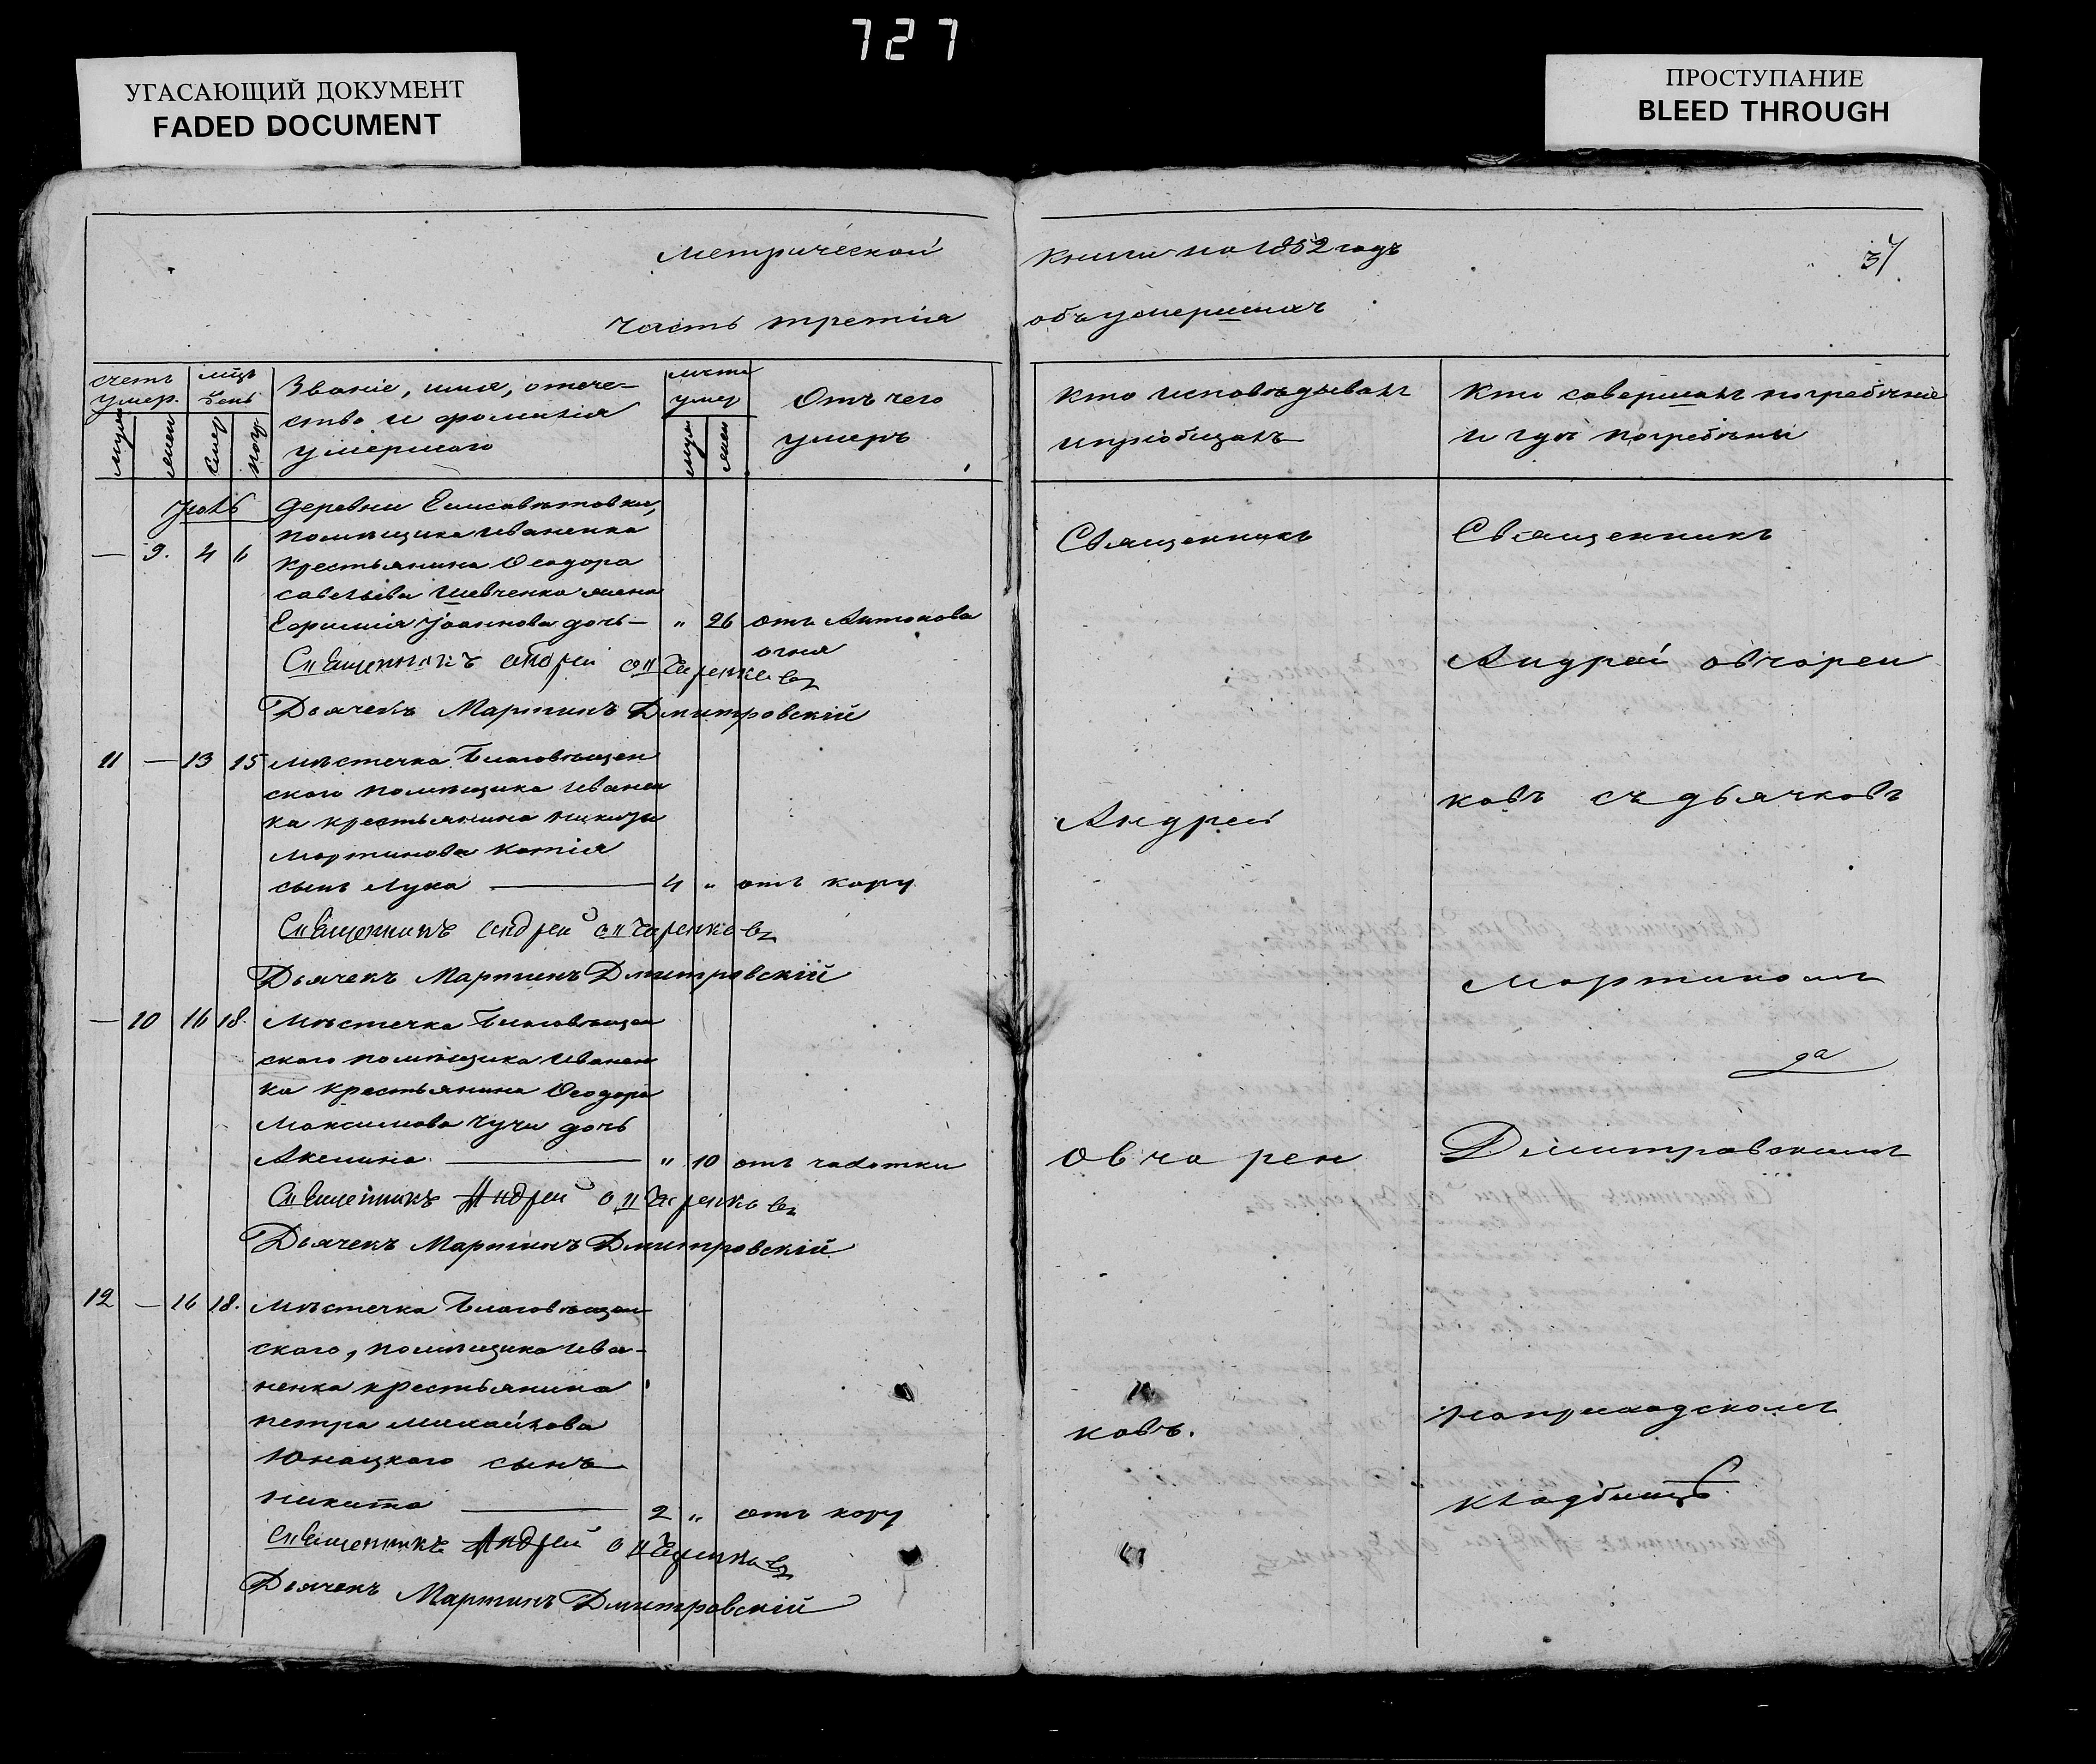 727
УГАСАЮЩИЙ ДОКУМЕНТ
FADED DOCUMENT
ПРОСТУПАНИЕ
BLEED THROUGH
Метрической
часть третія
счетъ умер.
мцъ день
Званіе, имя, отече-
ство и фамилія
умершаго
лѣта умер
Отъ чего
умеръ
деревни Елисаветовки,
помѣщика Иваненка
— 9. 4 6 крестьянина Ѳеодора
савельева Шевченка жена
Ефимія Іоаннова дочь — " 26 отъ Антонова
огня
Священникъ Андрей Овчаренковъ
Дьячекъ Мартинъ Дмитровскій
11 — 13 15 мѣстечка Благовѣщен
ского помѣщика Иванен
ка крестьянина Никиты
Мартинова
сынъ Лука — 4 " отъ кору
Священникъ Андрей Овчаренковъ
Дьячекъ Мартинъ Дмитровскій
— 10 16 18. Мѣстечка Благовѣщен
ского помѣщика Иванен
ка крестьянина Ѳеодора
Максимова дочь
Акелина — " 10 отъ чахотки
Священникъ Андрей Овчаренковъ
Дьячекъ Мартинъ Дмитровскій
12 — 16 18. мѣстечка Благовѣщен
ского, помѣщика Ива-
ненка крестьянина
петра михайлова
Юнацкого сынъ
Никита — 2 " отъ кору
Священникъ Андрей Овчаренковъ
Дьячекъ Мартинъ Дмитровскій
книги на 1852 годъ
37
объ умершихъ
Кто исповѣдывалъ
и пріобщалъ
Кто совершалъ погребеніе
и гдѣ погребены
Священникъ
Андрей
Овчарен
ковъ.
Священникъ
Андрей овчарен
ковъ съ дьячковъ
Мартиномъ
Дмитровскимъ
На приходскомъ
кладбищѣ